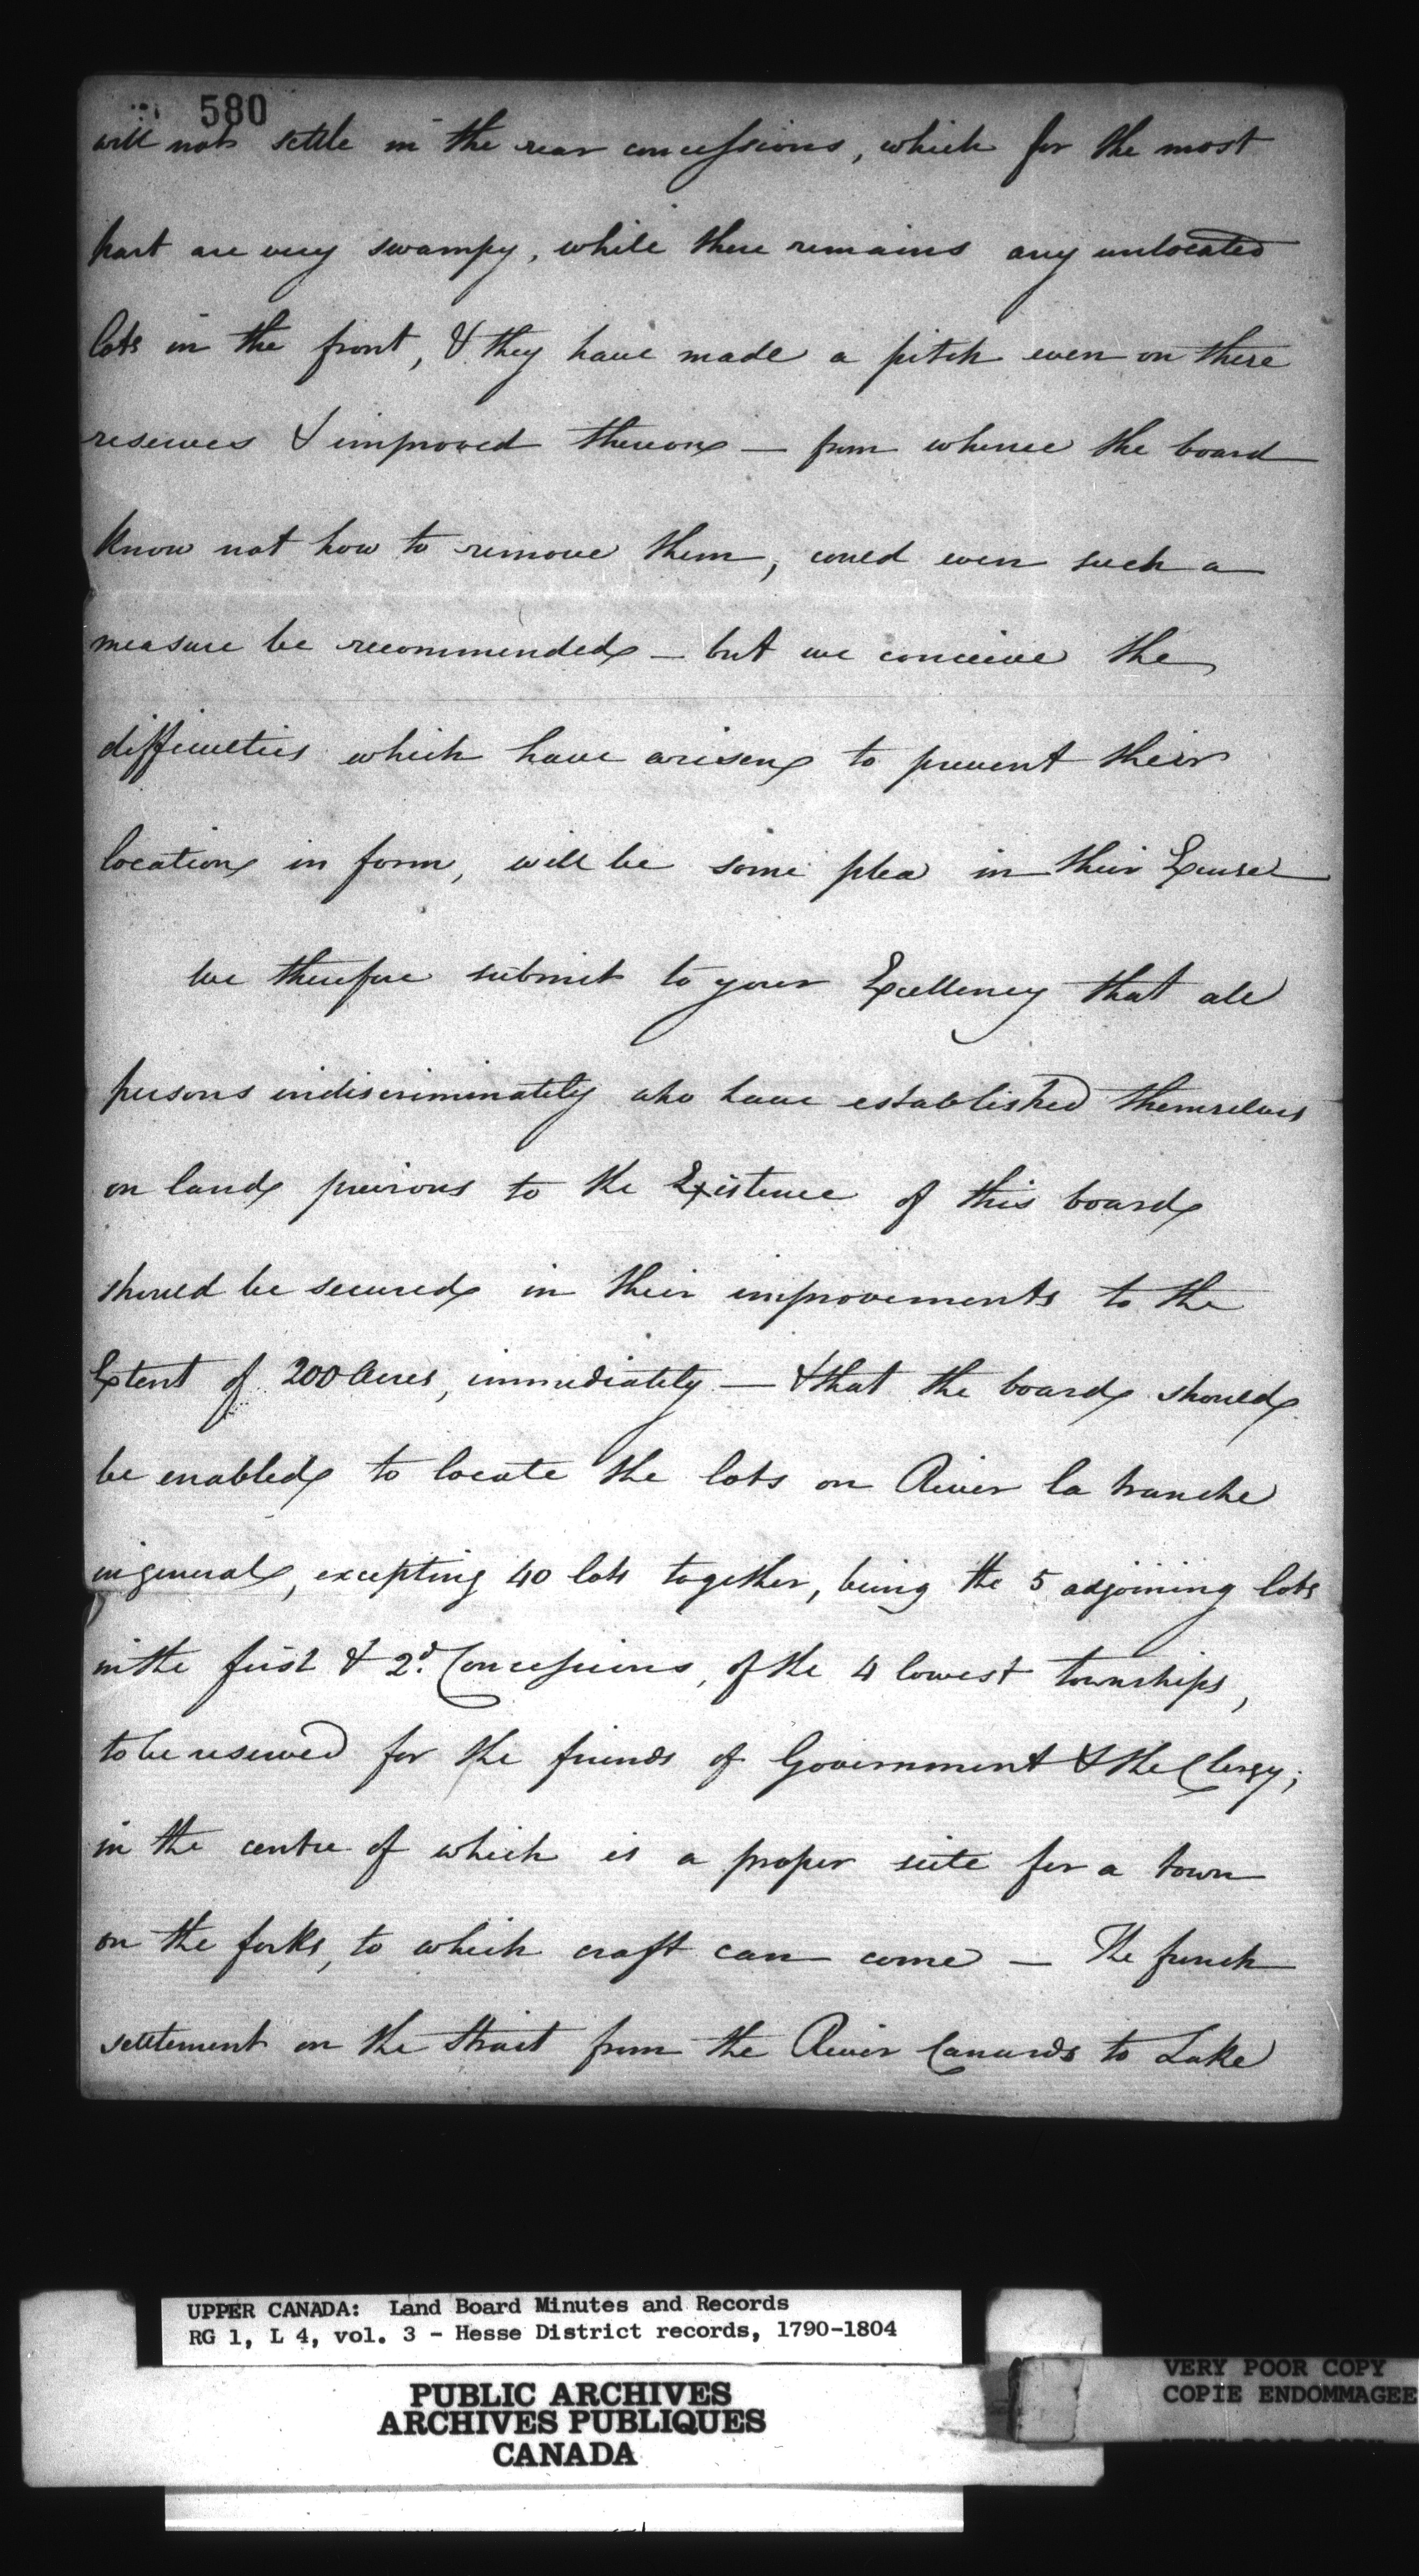 580
will not settle in the rear concessions, which for the most
part are very swampy, while there remains any unlocated
lots in the front, & they have made a pitch even on these
reserves & improved thereon — from whence the board
know not how to remove them, could even such a
measure be recommended — but we conceive the
difficulties which have arisen to prevent their
location in form, will be some plea in their Excuse
We therefore submit to your Excellency that all
persons indiscriminately who have established themselves
on land previous to the Existence of this board
should be secured in their improvements to the
Extent of 200 Acres, immediately — & that the board should
be enabled to locate the lots on River la tranche
in general, excepting 40 lots together, being the 5 adjoining lots
in the first & 2d. Concessions, of the 4 lowest townships,
to be reserved for the friends of Government & the Clergy;
in the centre of which is a proper scite for a town
on the forks, to which craft can come — The french
settlement on the strait from the River Canards to Lake
UPPER CANADA: Land Board Minutes and Records
RG 1, L 4, vol. 3 - Hesse District records, 1790-1804
PUBLIC ARCHIVES
ARCHIVES PUBLIQUES
CANADA
VERY POOR COPY
COPIE ENDOMMAGEE